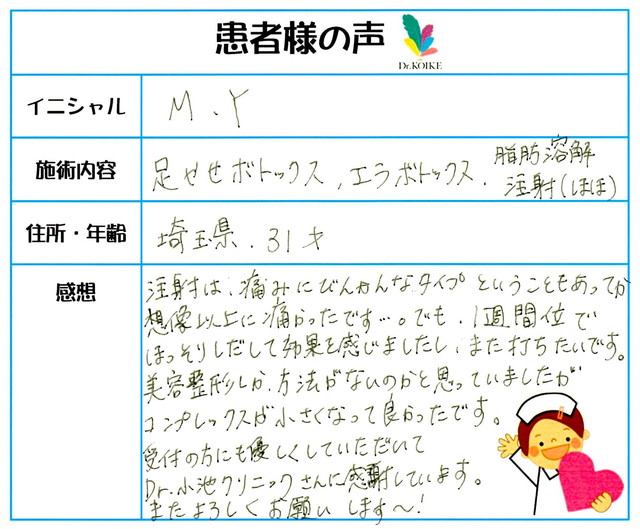 患者様の声
Dr.KOIKE
イニシャル
M.Y
施術内容
足やせボトックス、エラボトックス、脂肪溶解
注射(ほほ)
住所・年齢
埼玉県、31才
感想
注射は、痛みにびんかんなタイプということもあってか
想像以上に痛かったです…。でも、1週間位で
ほっそりしだして効果を感じましたし、また打ちたいです。
美容整形しか、方法がないのかと思っていましたが
コンプレックスが小さくなって良かったです。
受付の方にも優しくしていただいて
Dr.小池クリニックさんに感謝しています。
またよろしくお願いします〜!